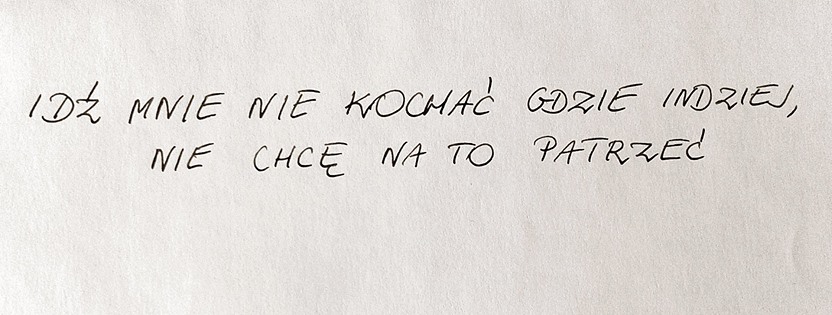 IDŹ MNIE NIE KOCHAĆ GDZIE INDZIEJ,
NIE CHCĘ NA TO PATRZEĆ